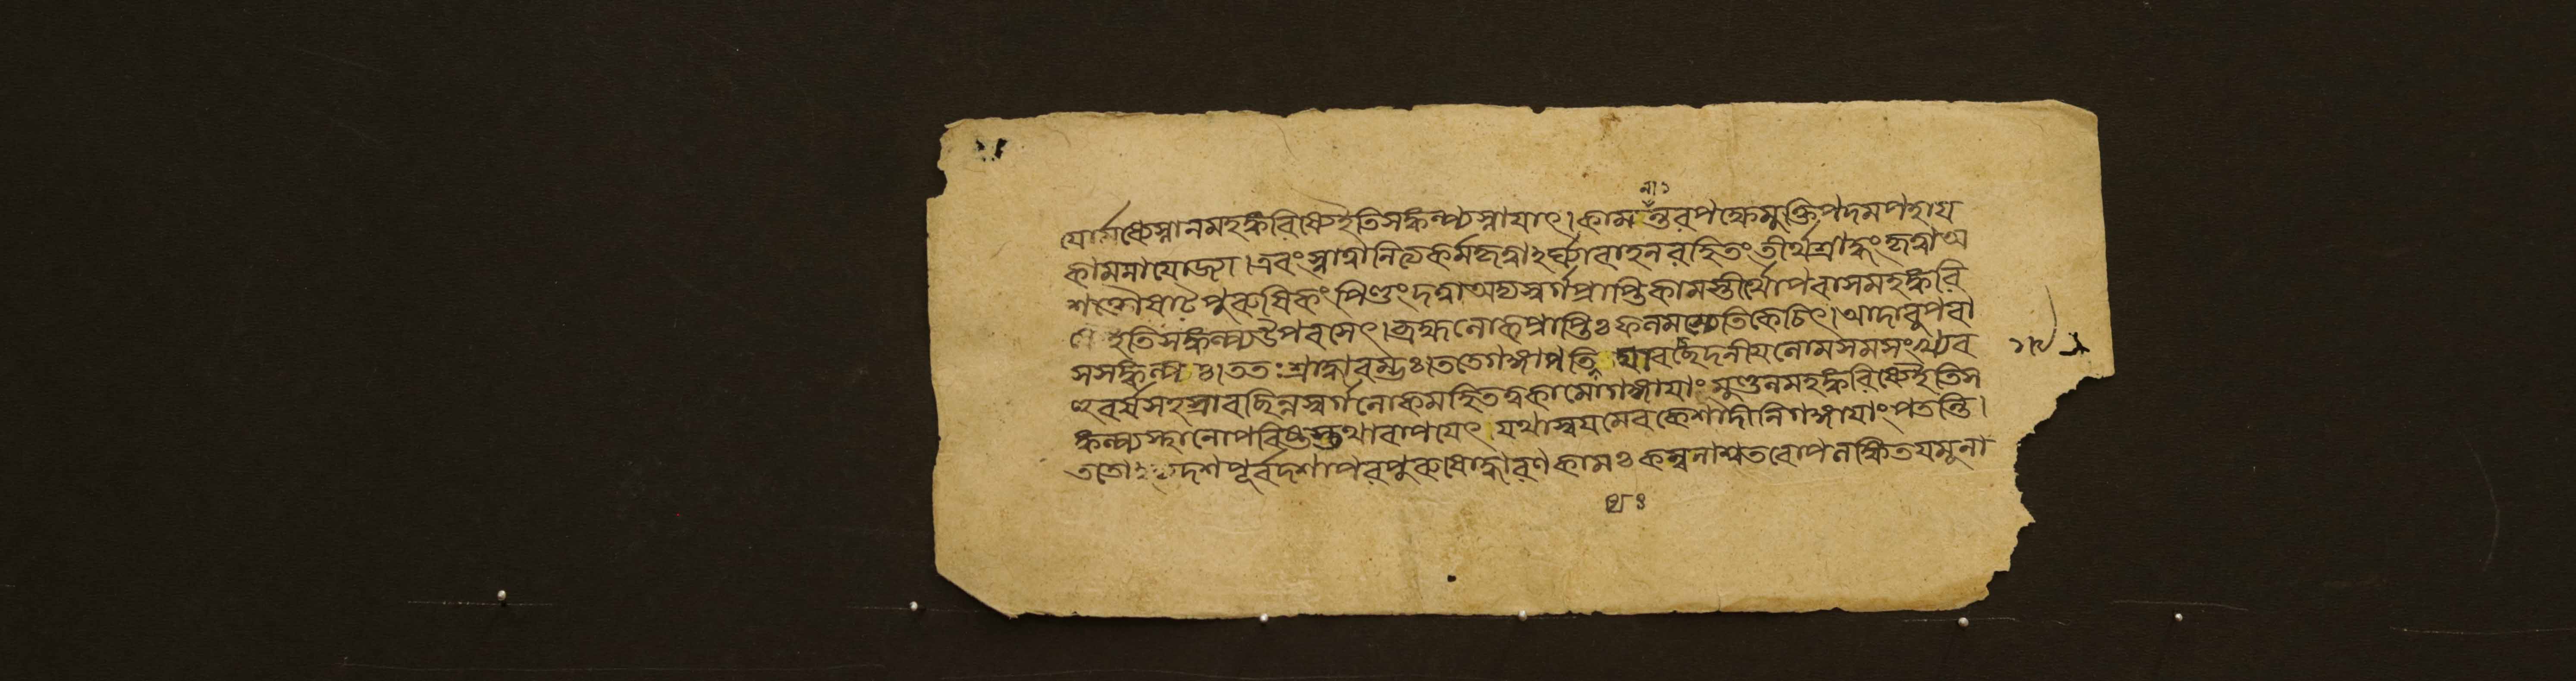 যোর্মধ্যেস্নানমহঙ্করিষ্যেইতিসঙ্কল্প্যস্নায়াৎ।কামনান্তরপক্ষেমুক্তিপদমপহায়
কামনাযোজ্যা।এবংস্নাত্বানিত্যকর্মকৃত্বাঽর্ঘ্যাবাহনরহিতংতীর্থশ্রাদ্ধংকৃত্বাঅ
শক্তৌষাট্পুরুষিকংপিণ্ডংদত্বাঅদ্যস্বর্গপ্রাপ্তিকামস্তীর্থোপবাসমহঙ্করি
ষ্যেইতিসঙ্কল্প্যউপবসেৎ।ব্রহ্মলোকপ্রাপ্তিঃফলমস্যেতিকেচিৎ।আদাবুপবা
সসঙ্কল্পঃ।ততঃশ্রাদ্ধারম্ভঃ।ততোগঙ্গাপতিতযাবচ্ছেদনীয়লোমসমসংখ্যব
র্ষসহস্রাবছিন্নস্বর্গলোকমহিতত্বকামোগঙ্গায়াংমুণ্ডনমহঙ্করিষ্যেইতিস
ঙ্কল্প্যস্থানোপবিষ্টস্তথাবাপয়েৎযথাস্বয়মেবকেশাদীনিগঙ্গায়াংপতন্তি।
ততোদশপূর্বদশাপরপুরুষোদ্ধারণকামঃকম্বলাশ্বতরোপলক্ষিতযমুনা